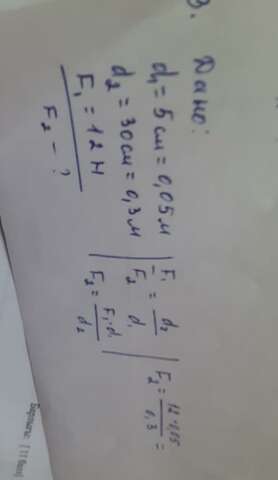 3. Дано:
d₁ = 5 см = 0,05 м
d₂ = 30 см = 0,3 м
F₁ = 12 Н
F₂ - ?
F₁/F₂ = d₂/d₁
F₂ = F₁·d₁/d₂
F₂ = 12·0,05/0,3 =
Барлығы: [11 балл]